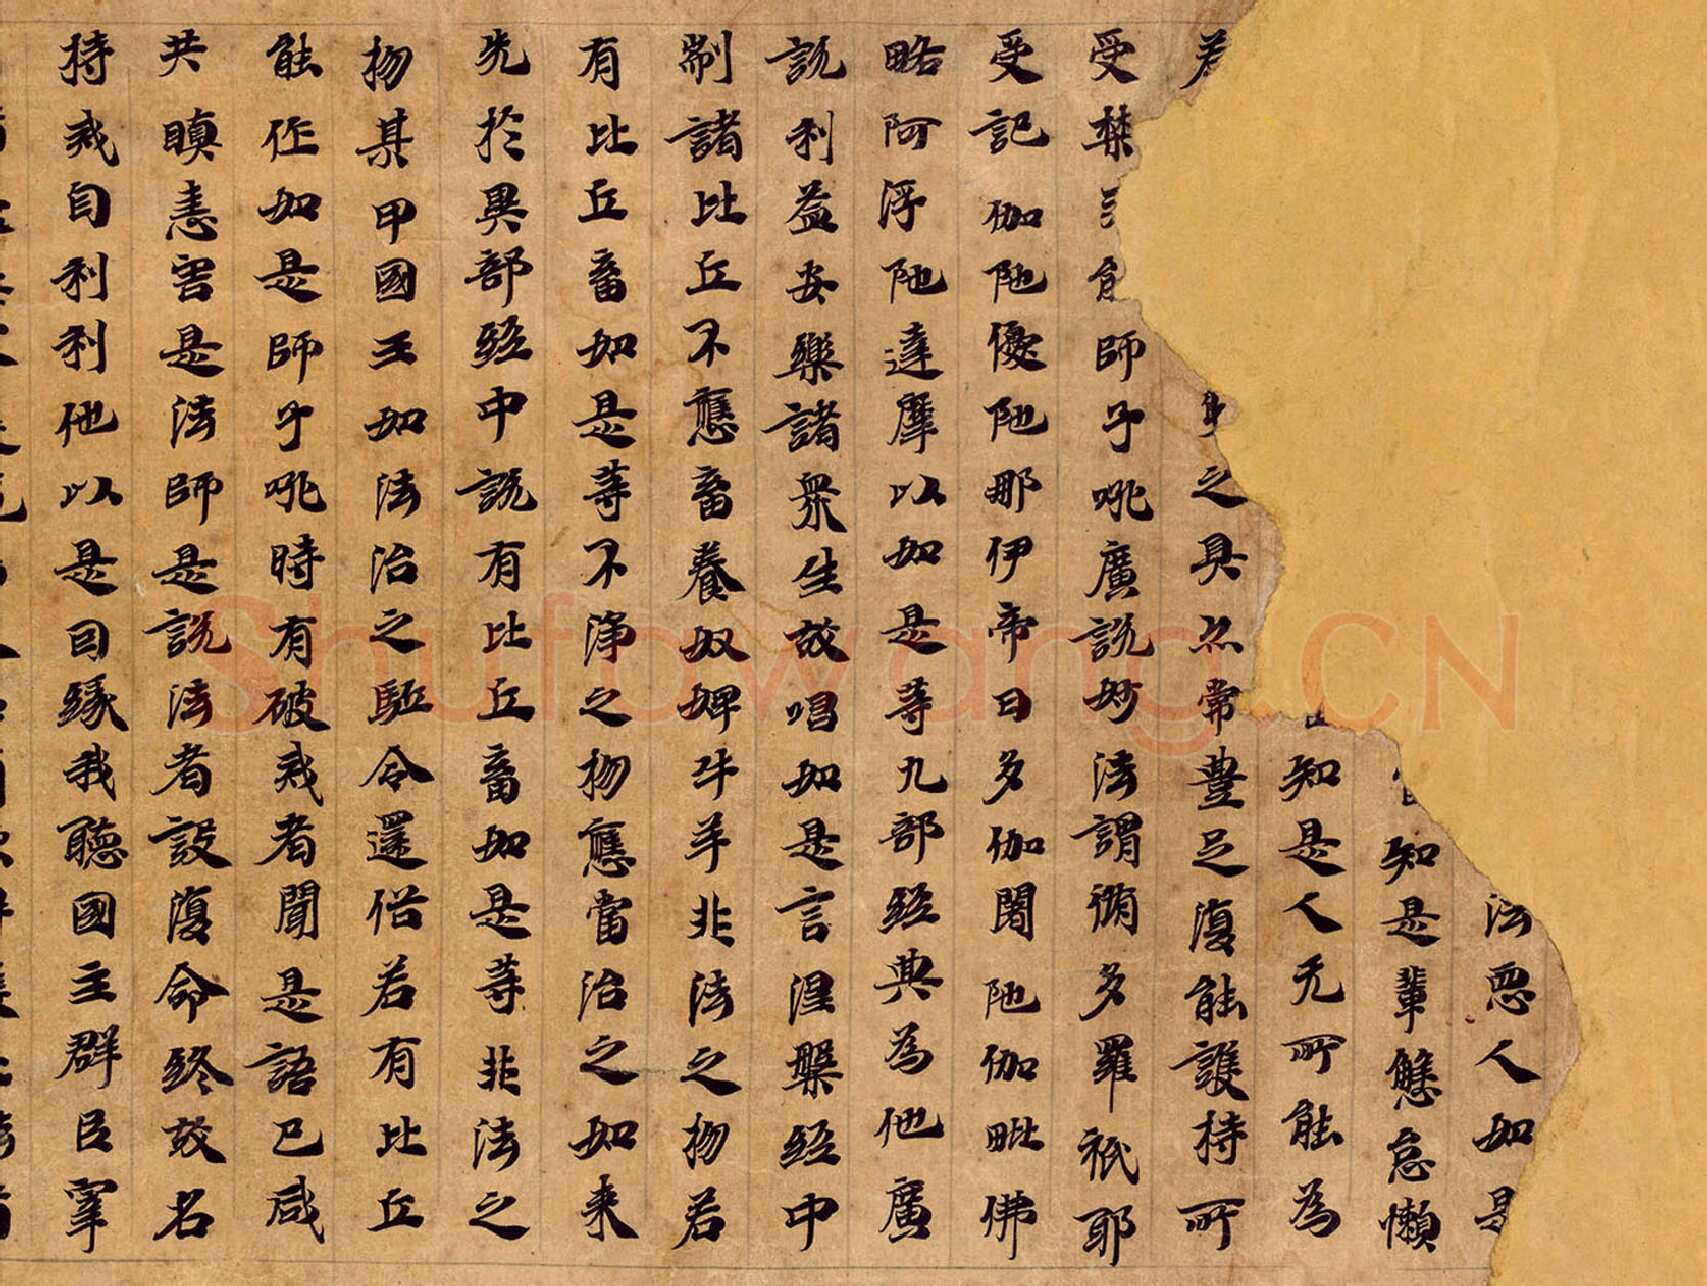 法惡人如是
知是輩懈怠懶
知是人无所能為
之具亦常豐足復能護持所
受禁能師子吼廣說妙法謂脩多羅祇耶
受記伽陁優陁那伊帝曰多伽闍陁伽毗佛
略阿浮陁達摩以如是等九部經典為他廣
說利益安樂諸衆生故唱如是言涅槃經中
制諸比丘不應畜養奴婢牛羊非法之物若
有比丘畜如是等不淨之物應當治之如来
先於異部經中說有比丘畜如是等非法之
物某甲國王如法治之駈令還俗若有比丘
能作如是師子吼時有破戒者聞是語已咸
共瞋恚害是法師是說法者設復命終故名
持戒自利利他以是因緣我聽國主群臣宰
Shufawang.CN